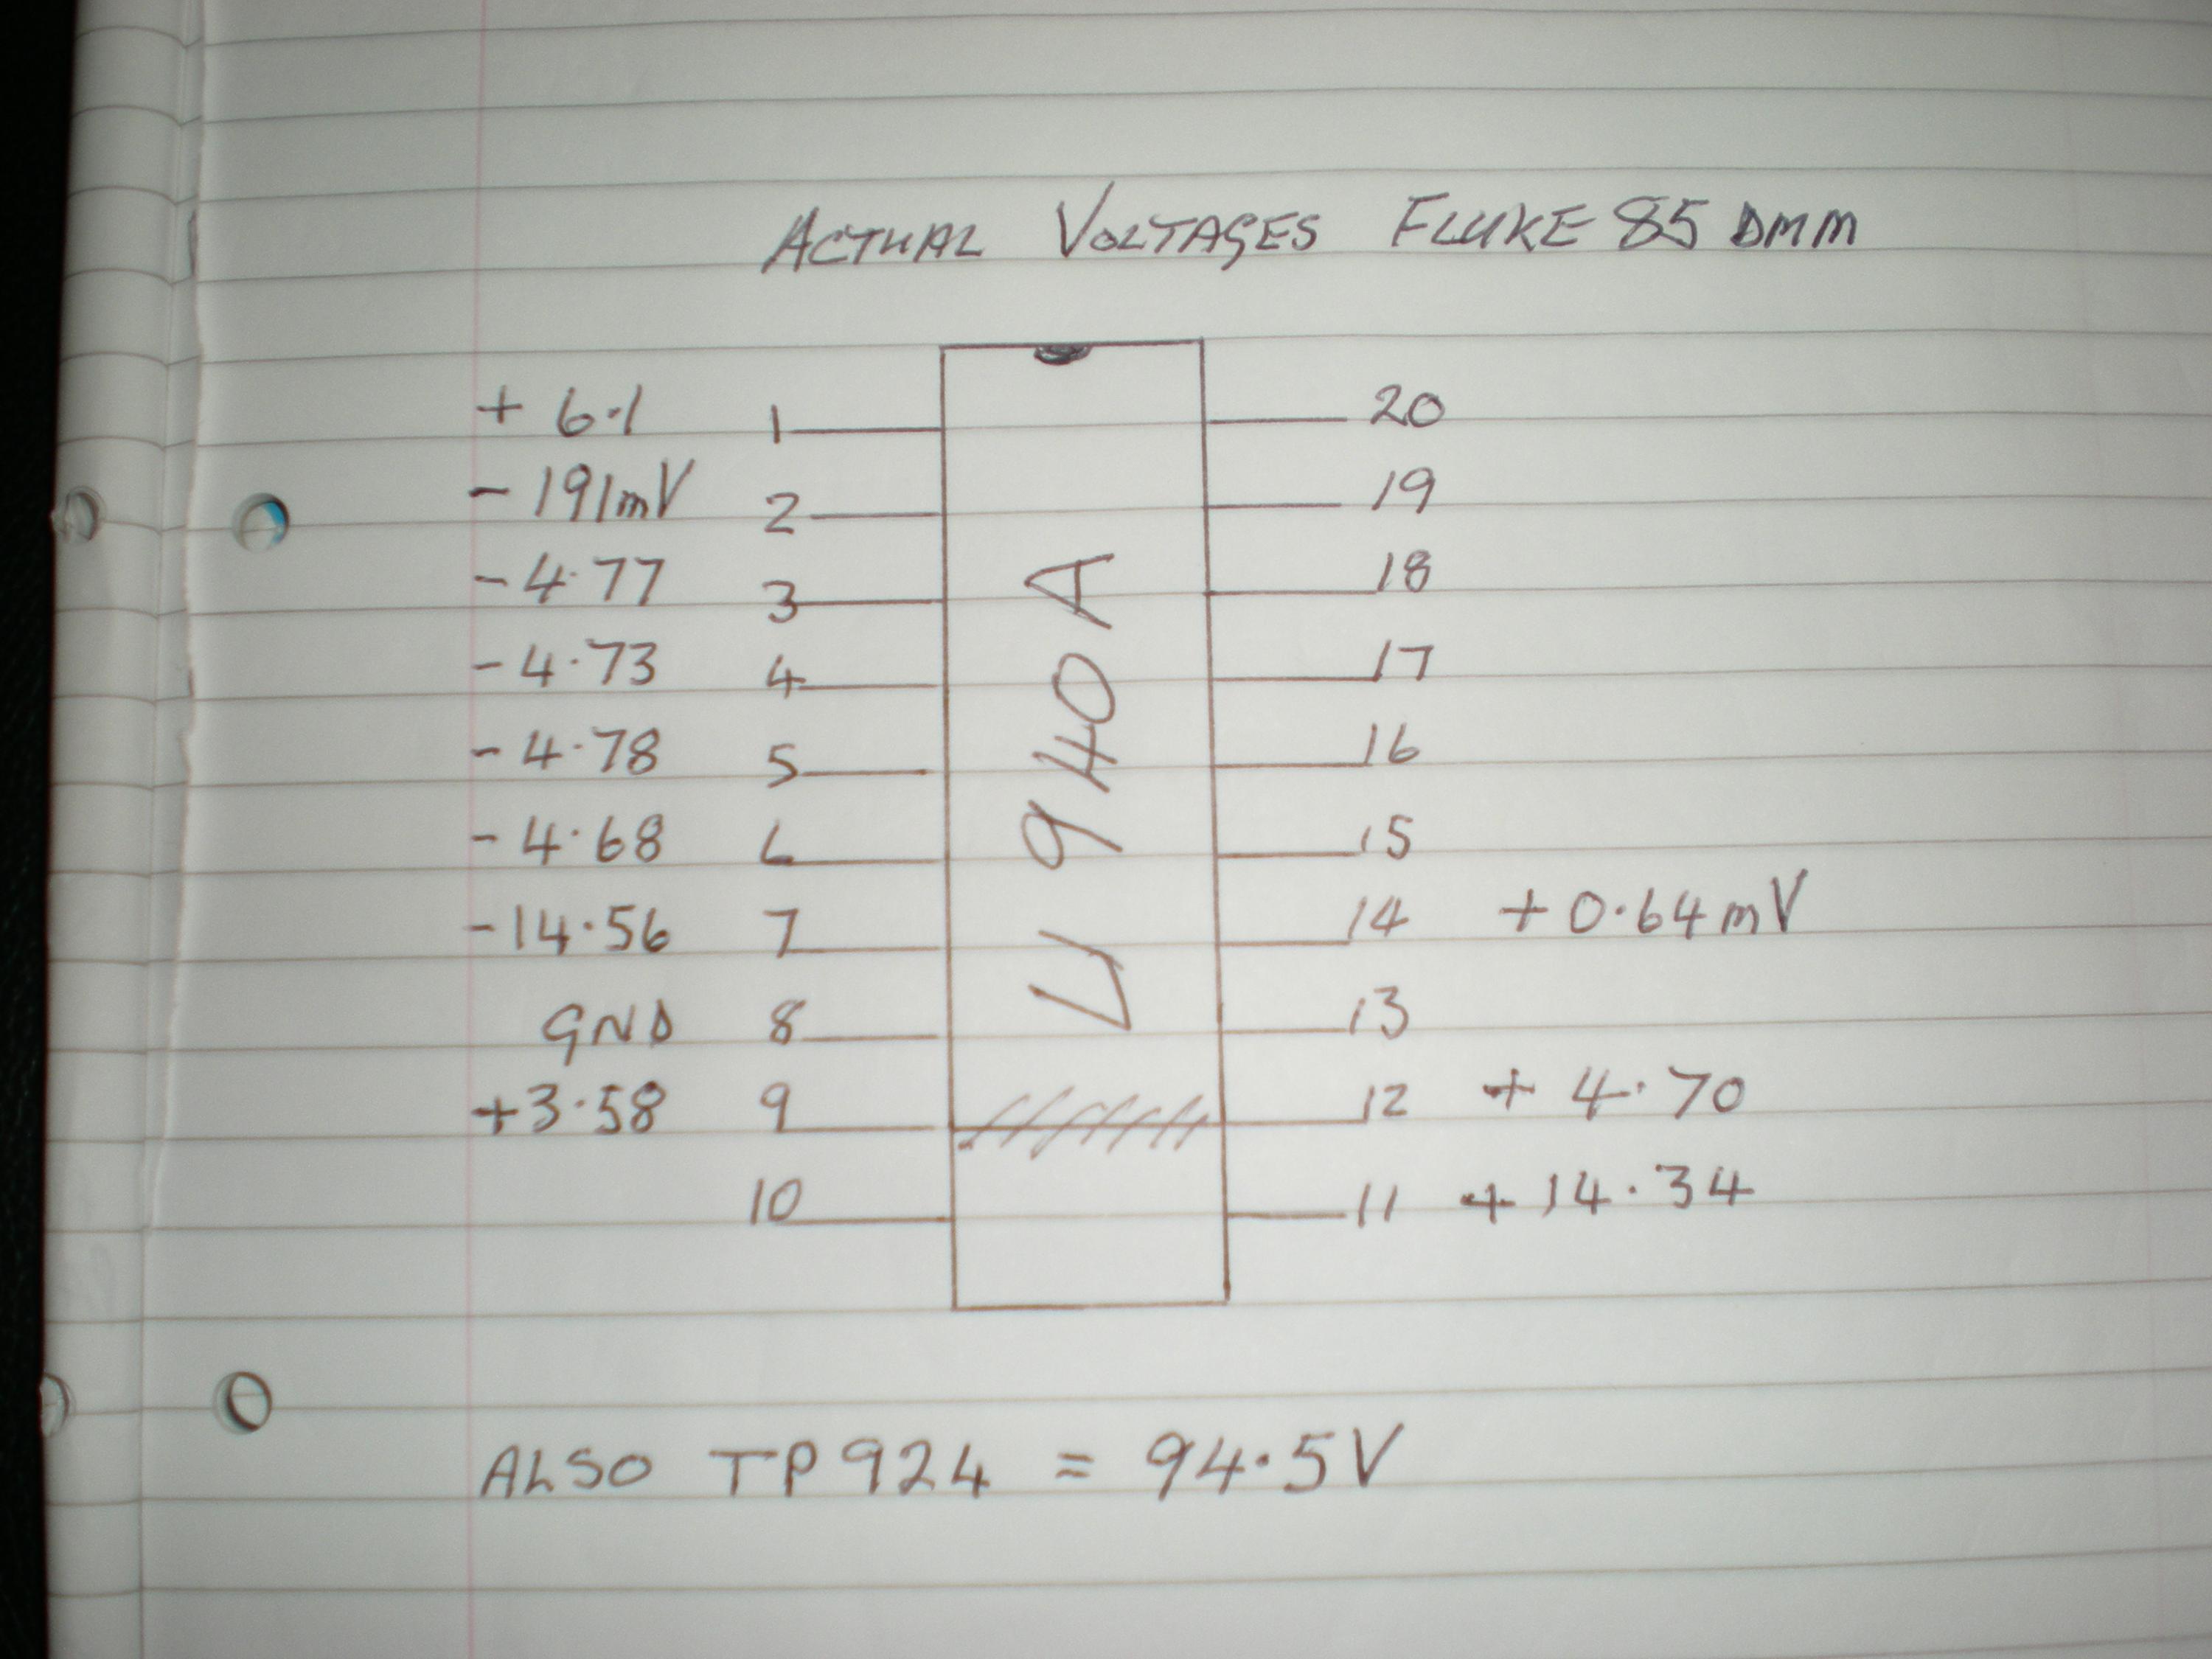 ACTUAL VOLTAGES FLUKE 85 DMM
+ 6.1 1 20
- 191mV 2 19
- 4.77 3 18
- 4.73 4 17
- 4.78 5 16
- 4.68 6 15
- 14.56 7 14 + 0.64mV
GND 8 13
+3.58 9 12 + 4.70
10 11 + 14.34
U 940A
ALSO TP924 = 94.5V